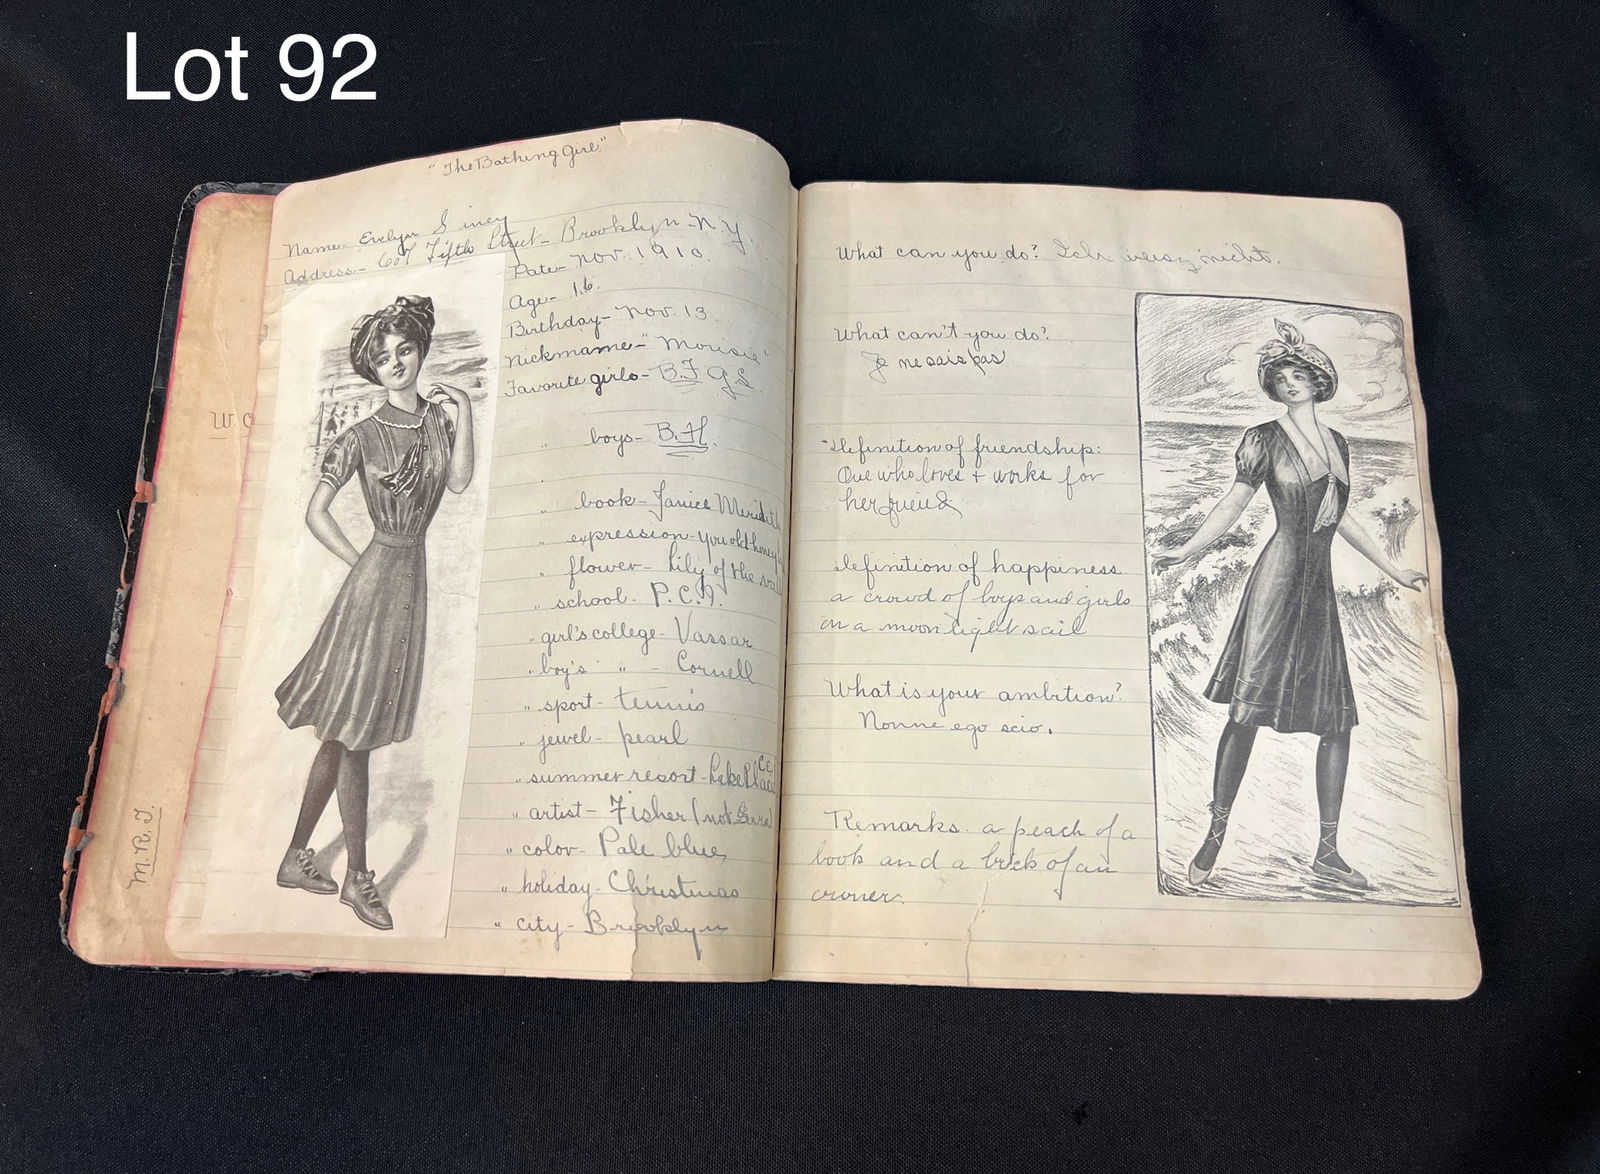 Lot 92
"The Bathing Girl"
Name- Evelyn Siney
Address- 607 Fifth Street- Brooklyn- N.Y.
Date- Nov. 1910.
Age- 16.
Birthday- Nov. 13
Nickname- "Mousie"
Favorite girls- B.F. G.S.
" boys- B.H.
" book- Janice Meredith
" expression- You old honey
" flower- Lily of the
" school- P.C.I.
" girl's college- Vassar
" boy's " - Cornell
" sport- tennis
" jewel- pearl
" summer resort- Lake Placid
" artist- Fisher (not
" color- Pale blue
" holiday- Christmas
" city- Brooklyn
M.R.T.
What can you do? Ich weisz nicht.
What can't you do?
Je ne sais pas
Definition of friendship:
One who loves + works for
her friend
Definition of happiness
a crowd of boys and girls
on a moonlight sail
What is your ambition?
Nonne ego scio.
Remarks. a peach of a
book and a brick of an
owner.